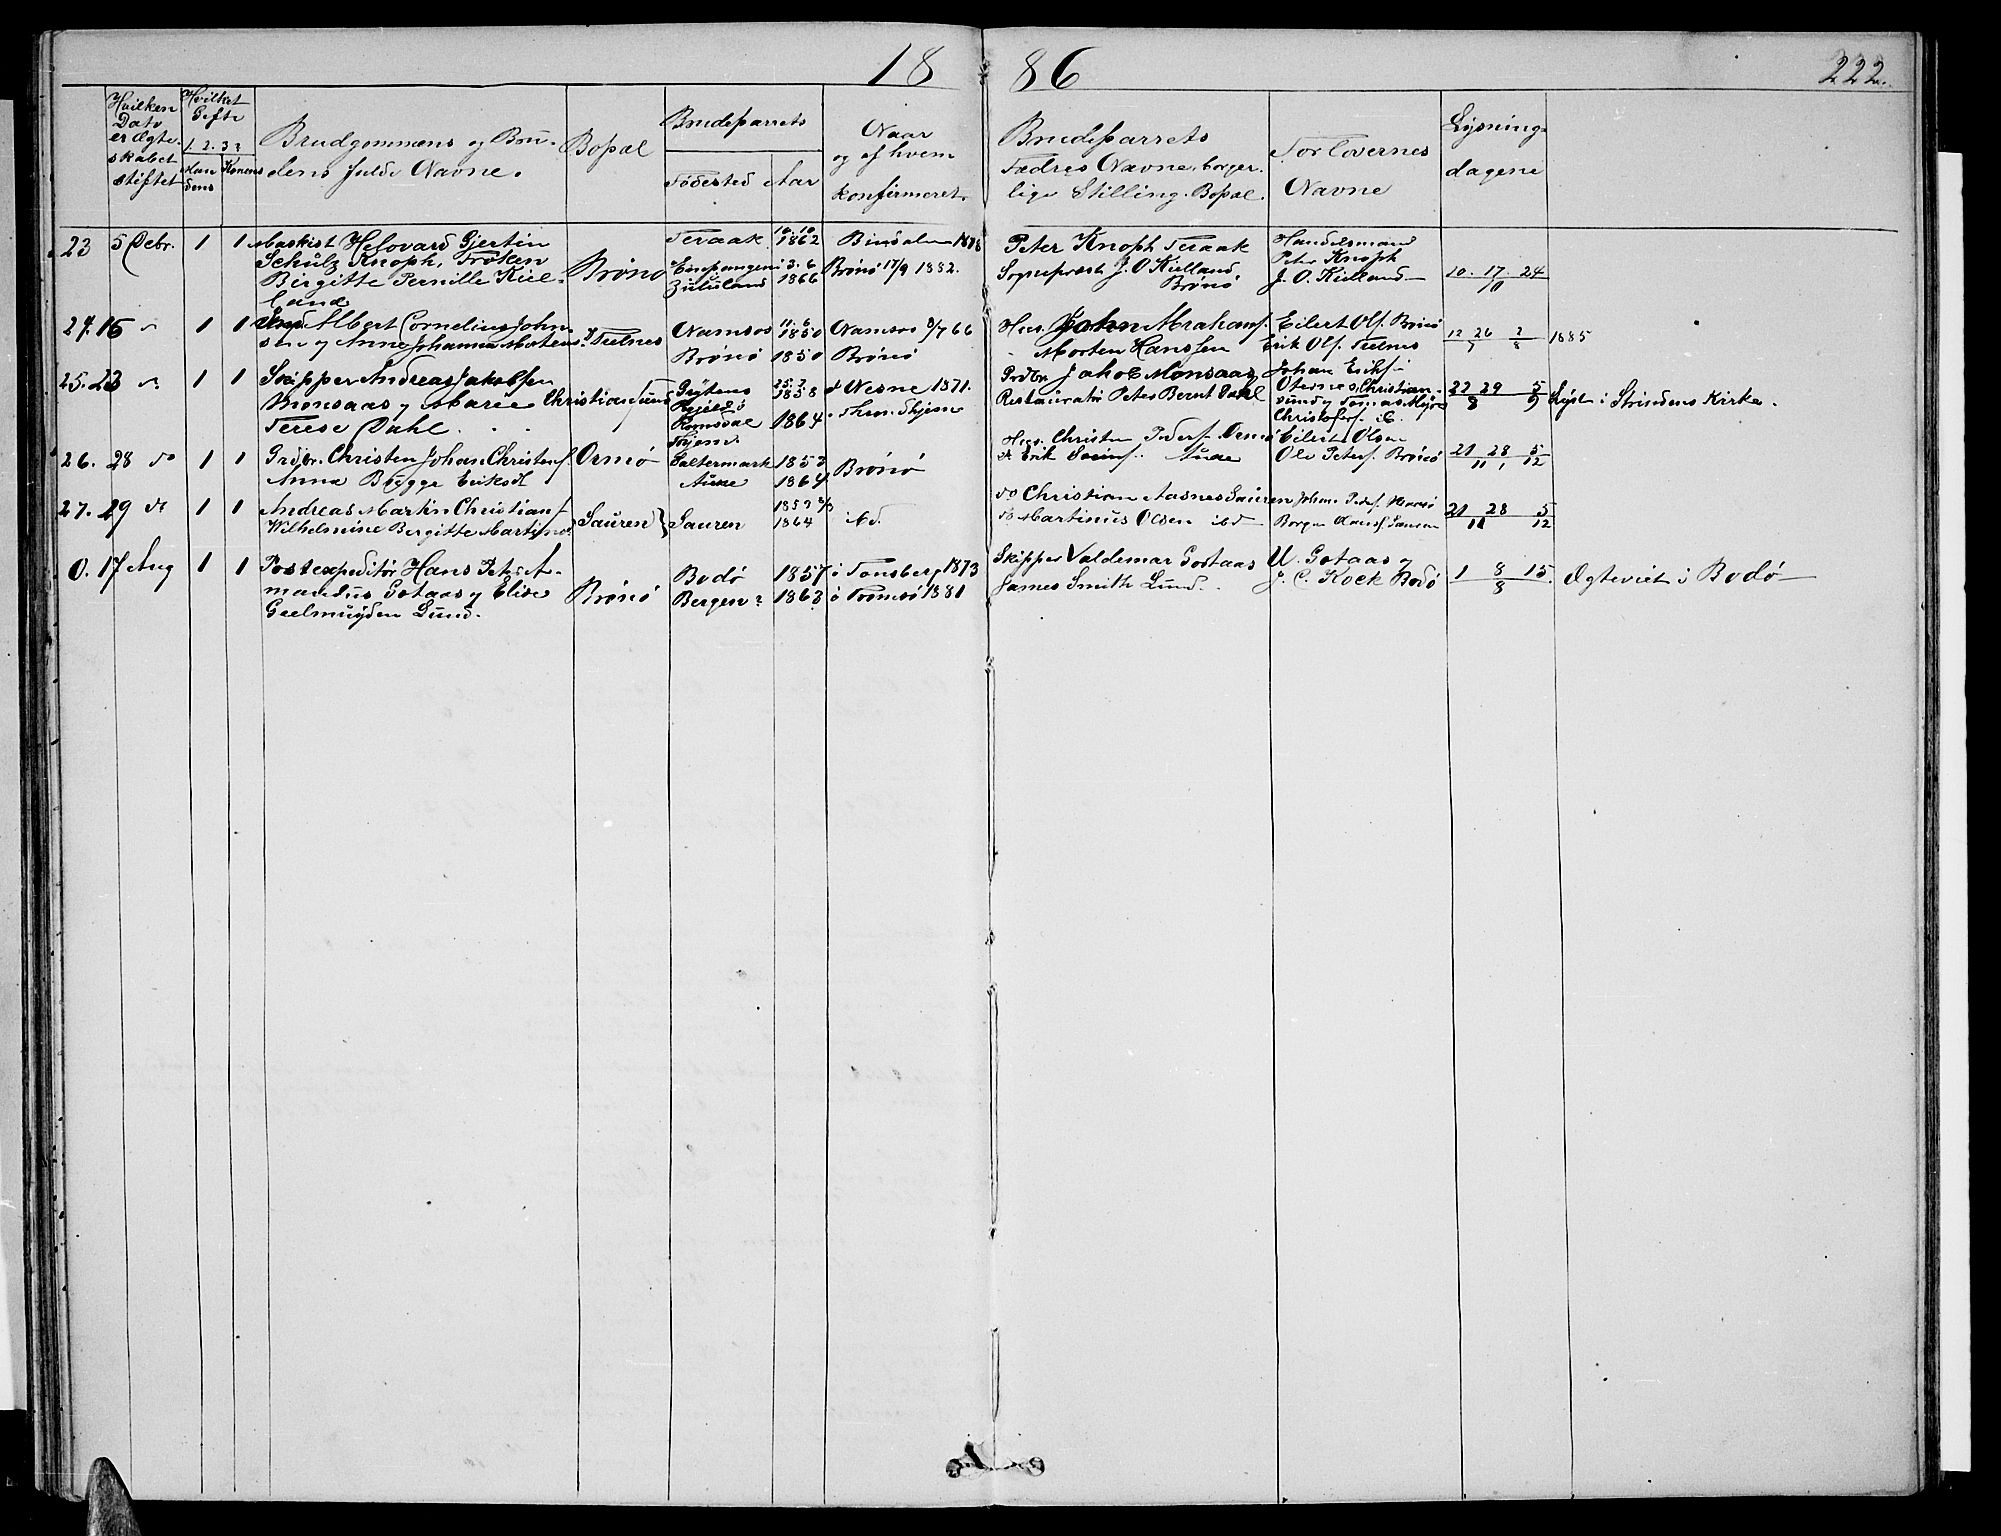 18 86 222.
Hvilken Dato er Ægteskabet stiftet
Hvilket Gifte 1. 2. 3?
Mandens Konens
Brudgommens og Brudens fulde Navne.
Bopæl
Brudeparrets
Fødested Aar
Naar og af hvem konfirmeret.
Brudeparrets Fædres Navne, borgerlige Stilling. Bopæl.
Forlovernes Navne
Lysningsdagene
23 5 Debr. 1 1 Maskist Helovard Gjertin
Schülz Knoph, Frøken
Birgitte Pernille Kielland
Brønø
Teraak 10.10 1862
Empangeni Zululand 3.6 1866
Bindalen 1878
Brønø 17/9 1882.
Peter Knoph Teraak
Sogneprest J. O. Kielland, Brønø
Handelsmand
Peter Knoph
J. O. Kielland
10. 17 24
27. 16 1 1 Albert Cornelius John
Anne Johanna Mortens
Tielnes
Namsos 1850
Brønø 1850
Namsos 8/7 66
Brønø
John Abrahamf.
Morten Hanssen
Eilert Olf. Brønø
Erik Olf. Tielnes
12 26 2
7 8
1885
25. 23 1 1 Skipper Andreas Jakobsen
Monsaas y Marie
Terese Dahl.
Christiansund
1858
Romsdal 1864
Nesne 1871.
Grdbr. Jakob Monsaas
Restauratør Peter Bernt Dahl
Johan Erikf
Oternes, Christiansund y Tomas
Christoferf. ib.
22 29 5
8 9
Lyst i Strindens Kirke.
26. 28 do 1 1 Grdbr. Christen Johan Christenf.
Anna Birgge Eriksd
Ormø
Saltermark 1853
1864
Brønø
Hus. Christen Pederf. Ormø
Eilert Olsen
Ole Peterf. Brønø
21 28 5
11 12
27. 29 do 1 1 Andreas Martin Christianf
Wilhelmine Bergitte Martinsd.
Sauren
Sauren 1859
1864
ibd.
do Christian Aasnes Sauren
do Martinus Olsen ibd
Johan Pederf.
Borger Hansf Sauren
21 28 5
11 12
0. 17 Aug 1 1 Postexpeditør Hans Peter A-
mandus Gotaas y Elise
Geelmuyden Lund.
Brønø
Bodø 1857
Bergen? 1863
i Tønsberg 1873
i Tromsø 1881
Skipper Valdemar Gotaas
James Smith Lund.
U. Gotaas y
J. C. Kock Bodø
1 8 15.
8
Ægteviet i Bodø